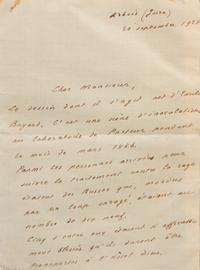 Arbois (Jura)
20 septembre
Cher Monsieur,
Le dessin dont il s'agit est d'Emile
Bayard. C'est une scène d'inoculation
au laboratoire de Pasteur pendant
le mois de mars 1886.
Parmi les personnes arrivées pour
suivre le traitement contre la rage
étaient des Russes que, mordus
par un loup enragé, étaient au
nombre de dix neuf.
Cinq d'entre eux étaient si affreuse
ment blessés qu'ils durent être
transportés à l'Hôtel Dieu,